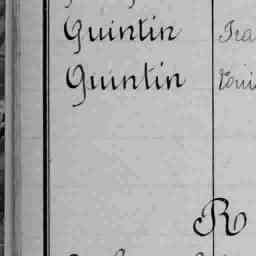 Quintin
Quintin
R